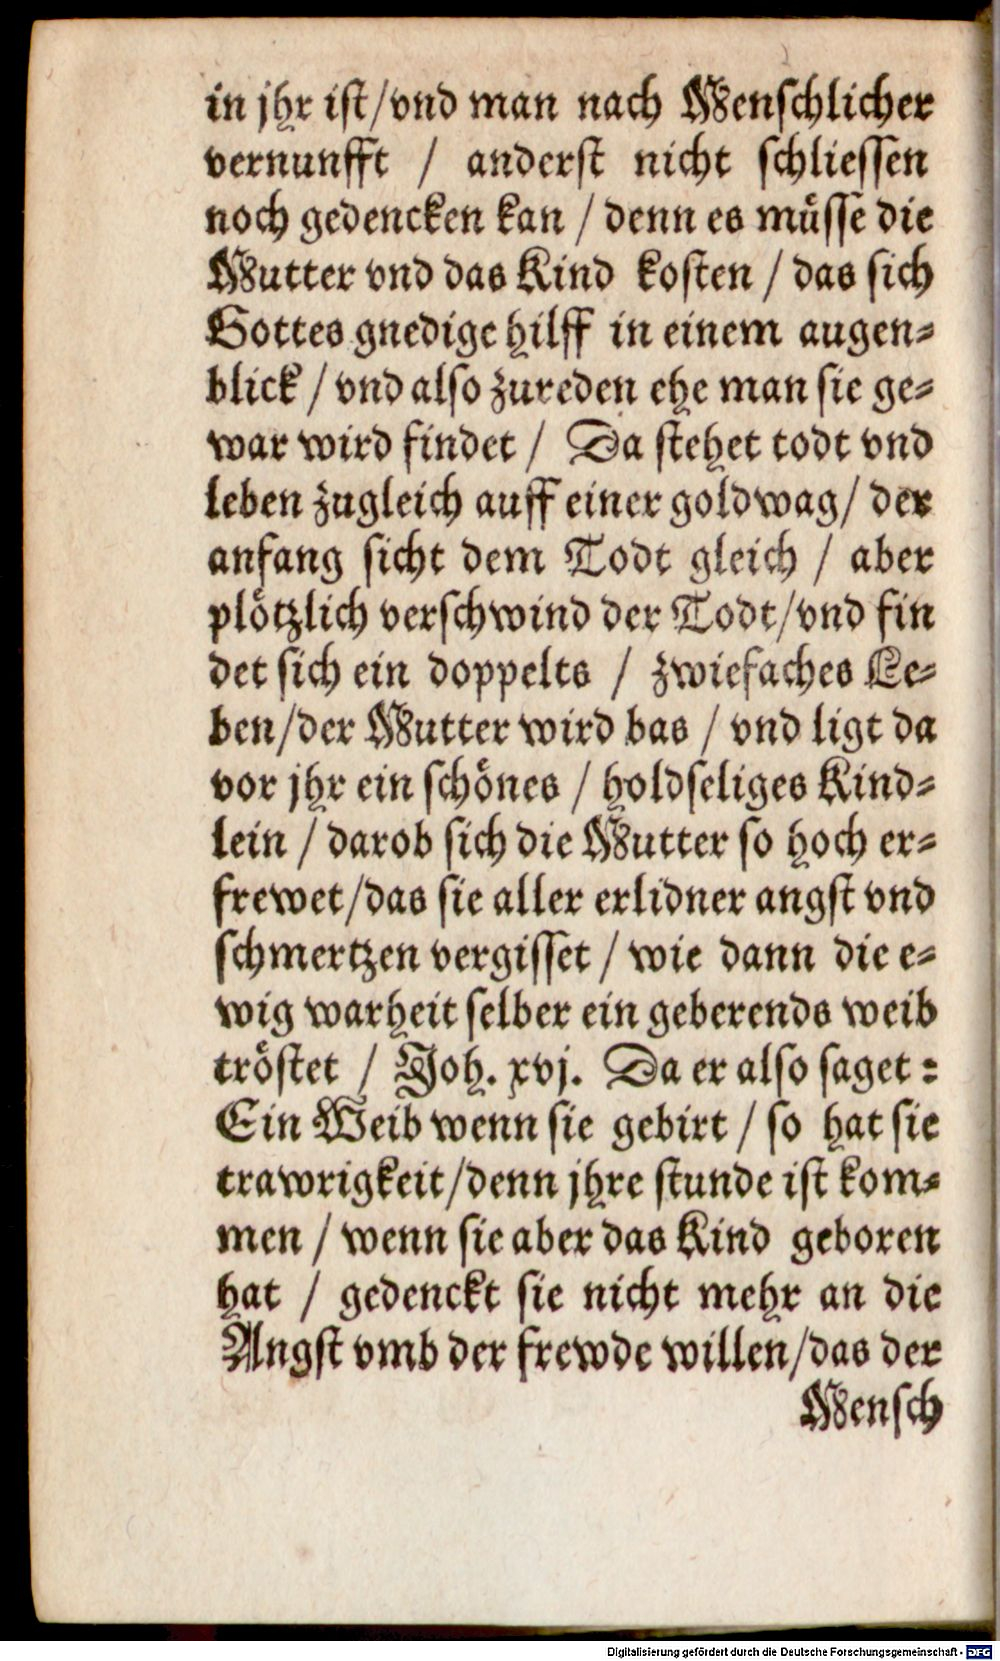 in jhr ist/vnd man nach Menschlicher
vernunfft / anderst nicht schliessen
noch gedencken kan / denn es müsse die
Mutter vnd das Kind kosten / das sich
Gottes gnedige hilff in einem augen-
blick / vnd also zureden ehe man sie ge-
war wird findet / Da stehet todt vnd
leben zugleich auff einer goldwag/ der
anfang sicht dem Todt gleich / aber
plötzlich verschwind der Todt/vnd fin
det sich ein doppelts / zwiefaches Le-
ben/der Mutter wird bas / vnd ligt da
vor jhr ein schönes / holdseliges Kind-
lein / darob sich die Mutter so hoch er-
frewet/das sie aller erlidner angst vnd
schmertzen vergisset / wie dann die e-
wig warheit selber ein geberends weib
tröstet / Joh. xvj. Da er also saget :
Ein Weib wenn sie gebirt / so hat sie
trawrigkeit/denn jhre stunde ist kom-
men / wenn sie aber das Kind geboren
hat / gedenckt sie nicht mehr an die
Angst vmb der frewde willen/das der
Mensch
Digitalisierung gefördert durch die Deutsche Forschungsgemeinschaft - DFG